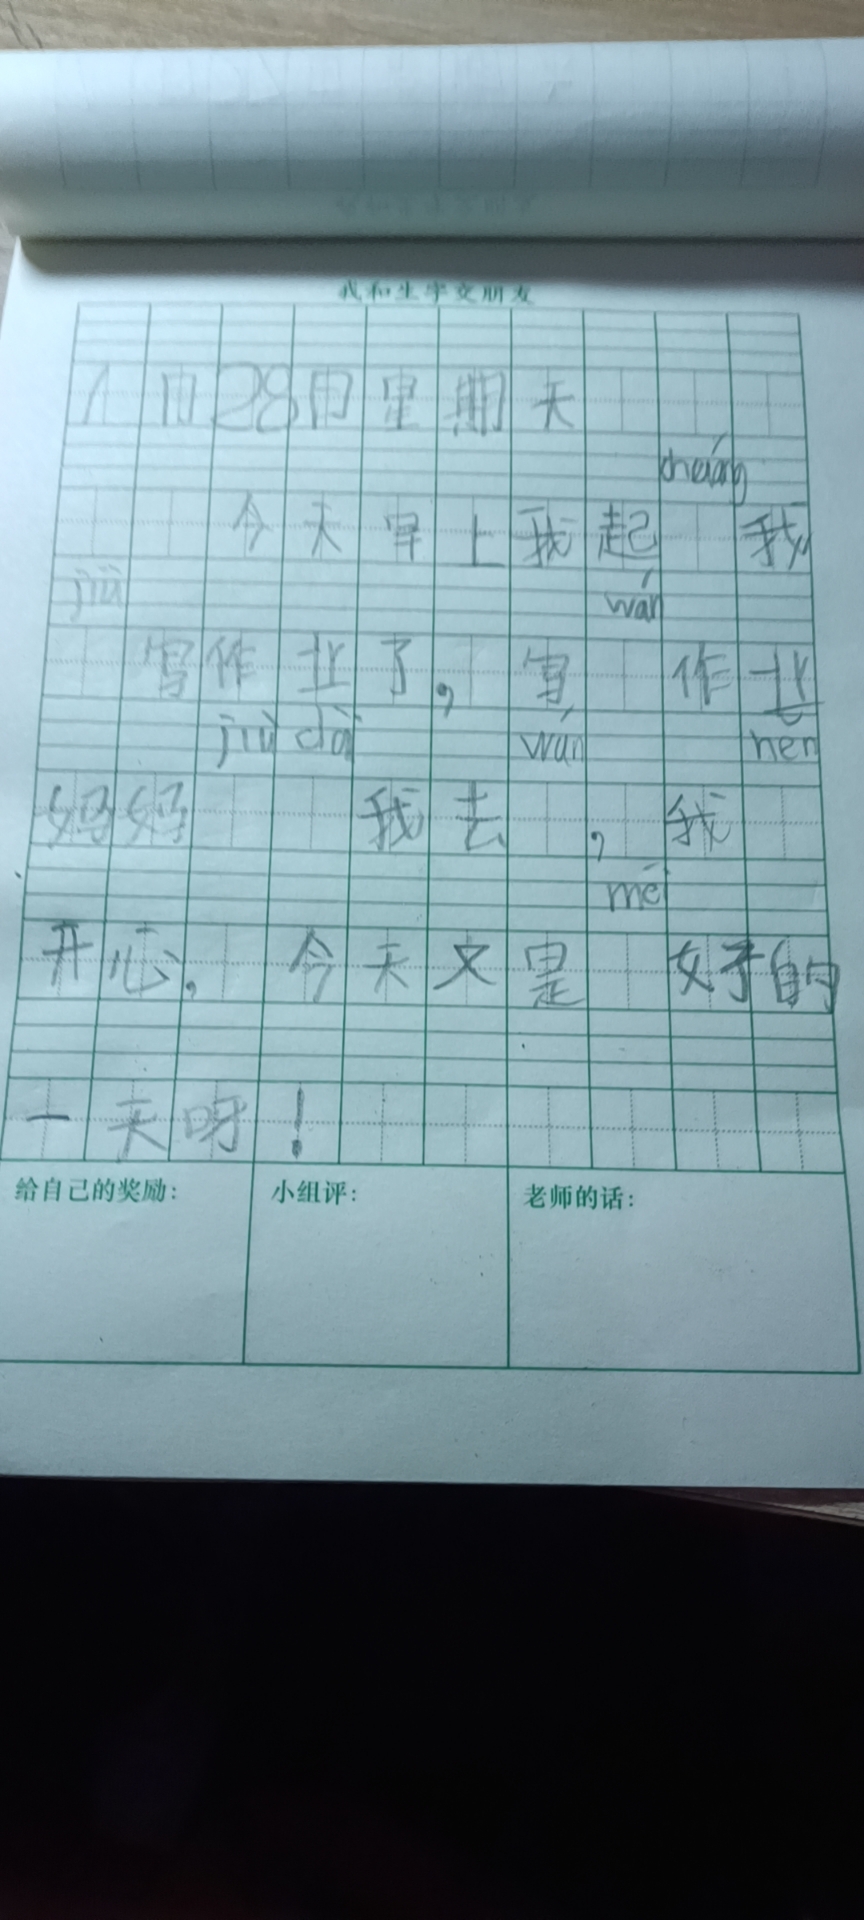 我和生字交朋友
1月28日星期天
cháng
今天早上我起 我
jiù wán
写作业了，写 作业
jiù dài wán hěn
妈妈 我去 ，我
měi
开心，今天文是 好的
一天呀！
给自己的奖励： 小组评： 老师的话：